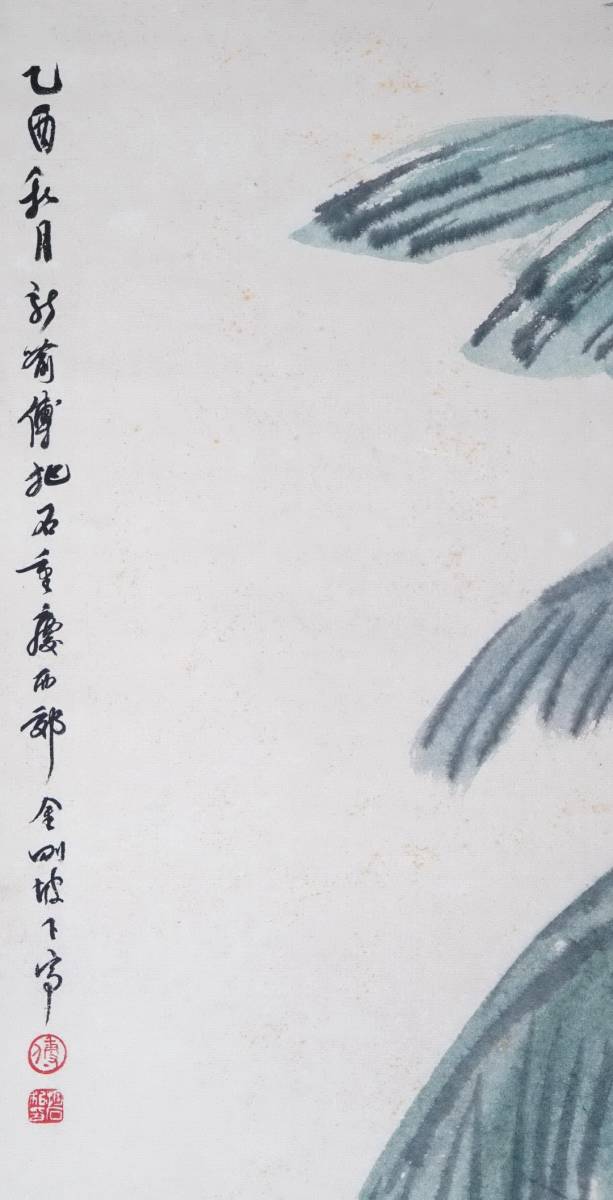 乙酉秋月新喻傅抱石重慶西郊金剛坡下寫
傅